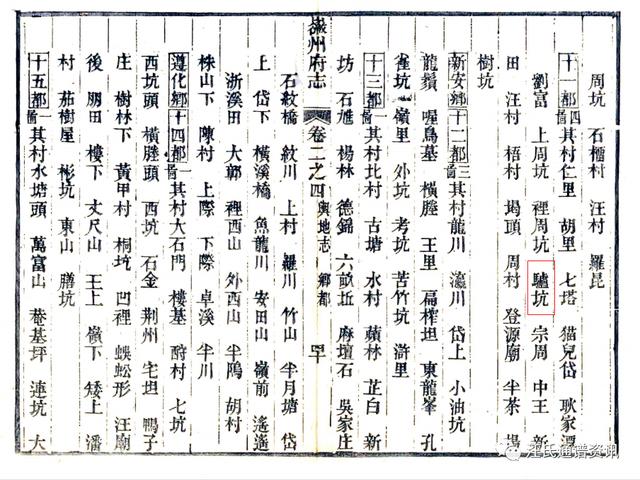 周坑 石橋村 汪村 羅昆
十一都四啚其村仁里 胡里 七塔 猫兒岱 耿家潭
劉富 上周坑 裡周坑 驢坑 宗周 中王 新
田 汪村 梧村 堨頭 周村 登源廟 半茶 楊
樹坑
新安鄉十二都三啚其村龍川 瀛川 岱上 小油坑
龍鬚 喔鳥基 橫塍 王里 扁榨坦 東龍峯 孔
雀坑 嶺里 外坑 考坑 苦竹坑 滸里
十三都一啚其村北村 古塘 水村 蘋林 芷白 新
坊 石馗 楊林 德錦 六畝坵 麻壇石 吳家庄
徽州府志 卷二之四 輿地志 鄉都
石紋橋 紋川 上村 羅川 竹山 半月塘 岱
上 岱下 橫溪橋 魚龍川 安田山 嶺前 遙遙
浙溪田 大鄣 裡西山 外西山 半鳴 胡村
株山下 陳村 上際 下際 卓溪 半川
遵化鄉十四都一啚其村大石門 樓基 酧村 七坑
西坑頭 橫塍頭 西坑 石金 荆州 宅坦 鴨子
庄 樹林下 黃甲村 桐坑 凹裡 蜈蚣形 汪廟
後 朋田 樓下 丈尺山 王上 嶺下 矮上 潘
村 茄樹屋 彬坑 東山 膳坑
十五都一啚其村水塘頭 萬富山 菴基坪 連坑 大
汪氏通譜资讯